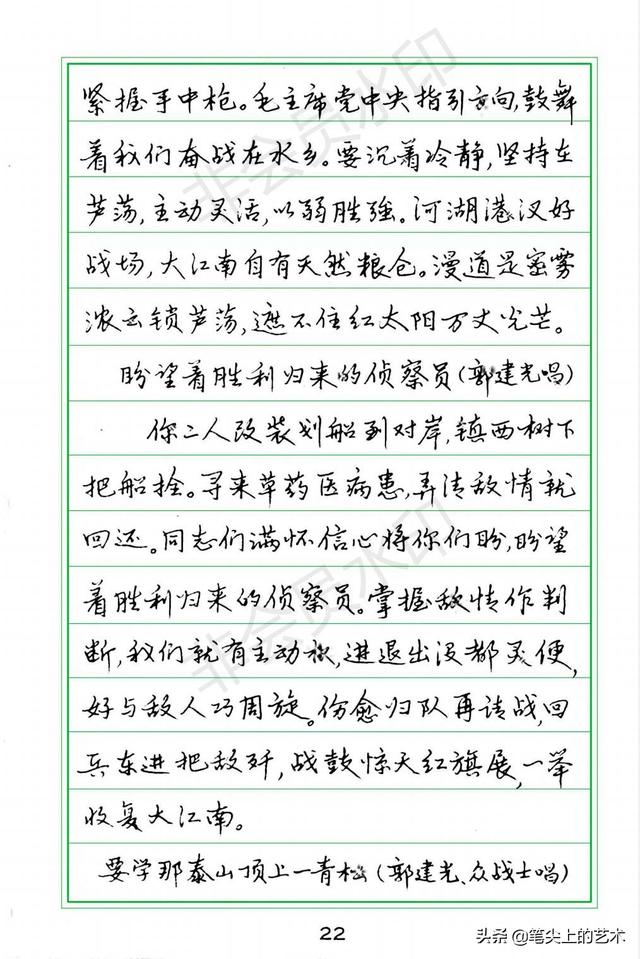 紧握手中枪。毛主席党中央指引方向,鼓舞
着我们奋战在水乡。要沉着冷静,坚持在
芦荡,主动灵活,以弱胜强。河湖港汊好
战场,大江南自有天然粮仓。漫道是密雾
浓云锁芦荡,遮不住红太阳万丈光芒。
盼望着胜利归来的侦察员(郭建光唱)
你二人改装划船到对岸,镇西树下
把船拴。寻来草药医病患,弄清敌情就
回还。同志们满怀信心将你们盼,盼望
着胜利归来的侦察员。掌握敌情作判
断,我们就有主动权,进退出没都灵便,
好与敌人巧周旋。伤愈归队再请战,回
兵东进把敌歼,战鼓惊天红旗展,一举
收复大江南。
要学那泰山顶上一青松(郭建光、众战士唱)
22
头条@笔尖上的艺术
非会员水印
非会员水印